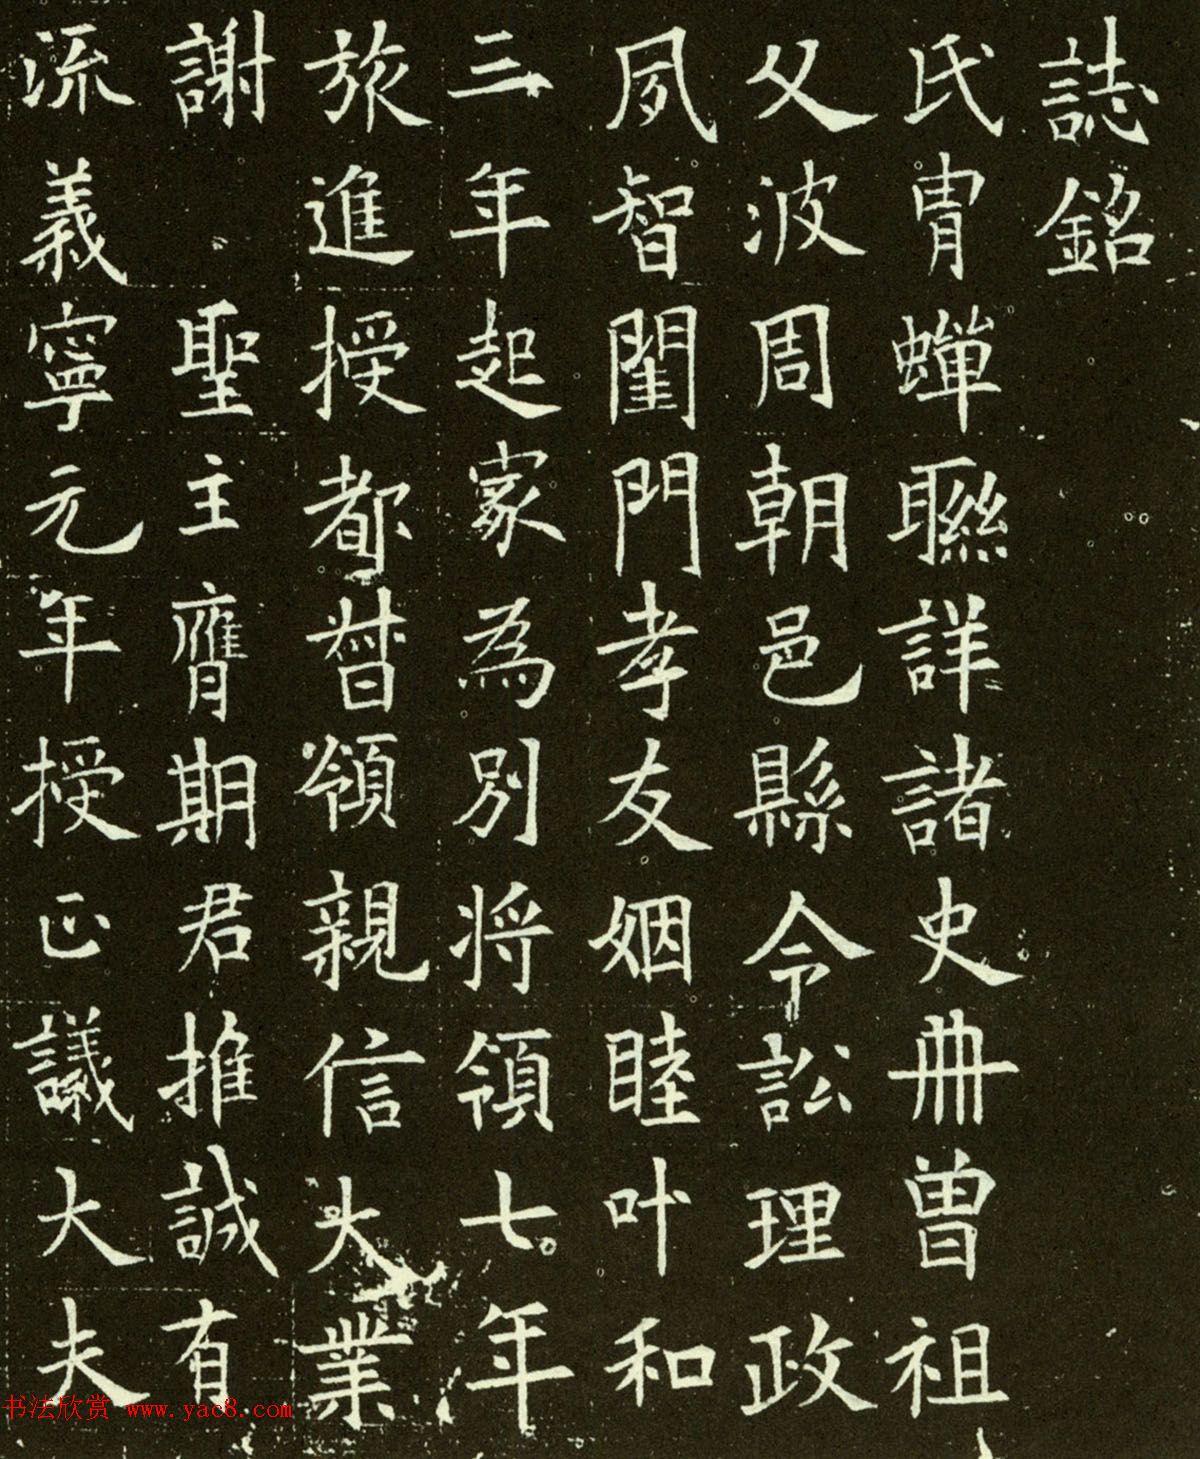 誌銘
氏胄蟬聯詳諸史冊曾祖
父波周朝邑縣令訟理政
夙智閨門孝友姻睦叶和
三年起家為別將領七年
旅進授都督領親信大業
謝聖主膺期君推誠有
流義寧元年授正議大夫
书法欣赏 www.yac8.com